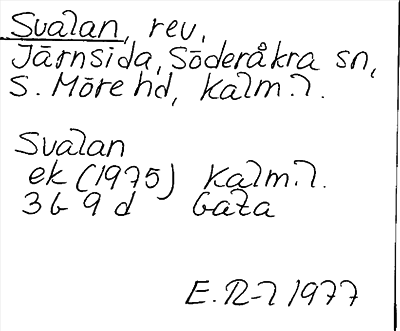 Svalan, rev,
Järnsida, Söderåkra sn,
S. Möre hd, Kalm. l.
Svalan
ek (1975) Kalm. l.
3G 9d Gata
E. R-l 1977